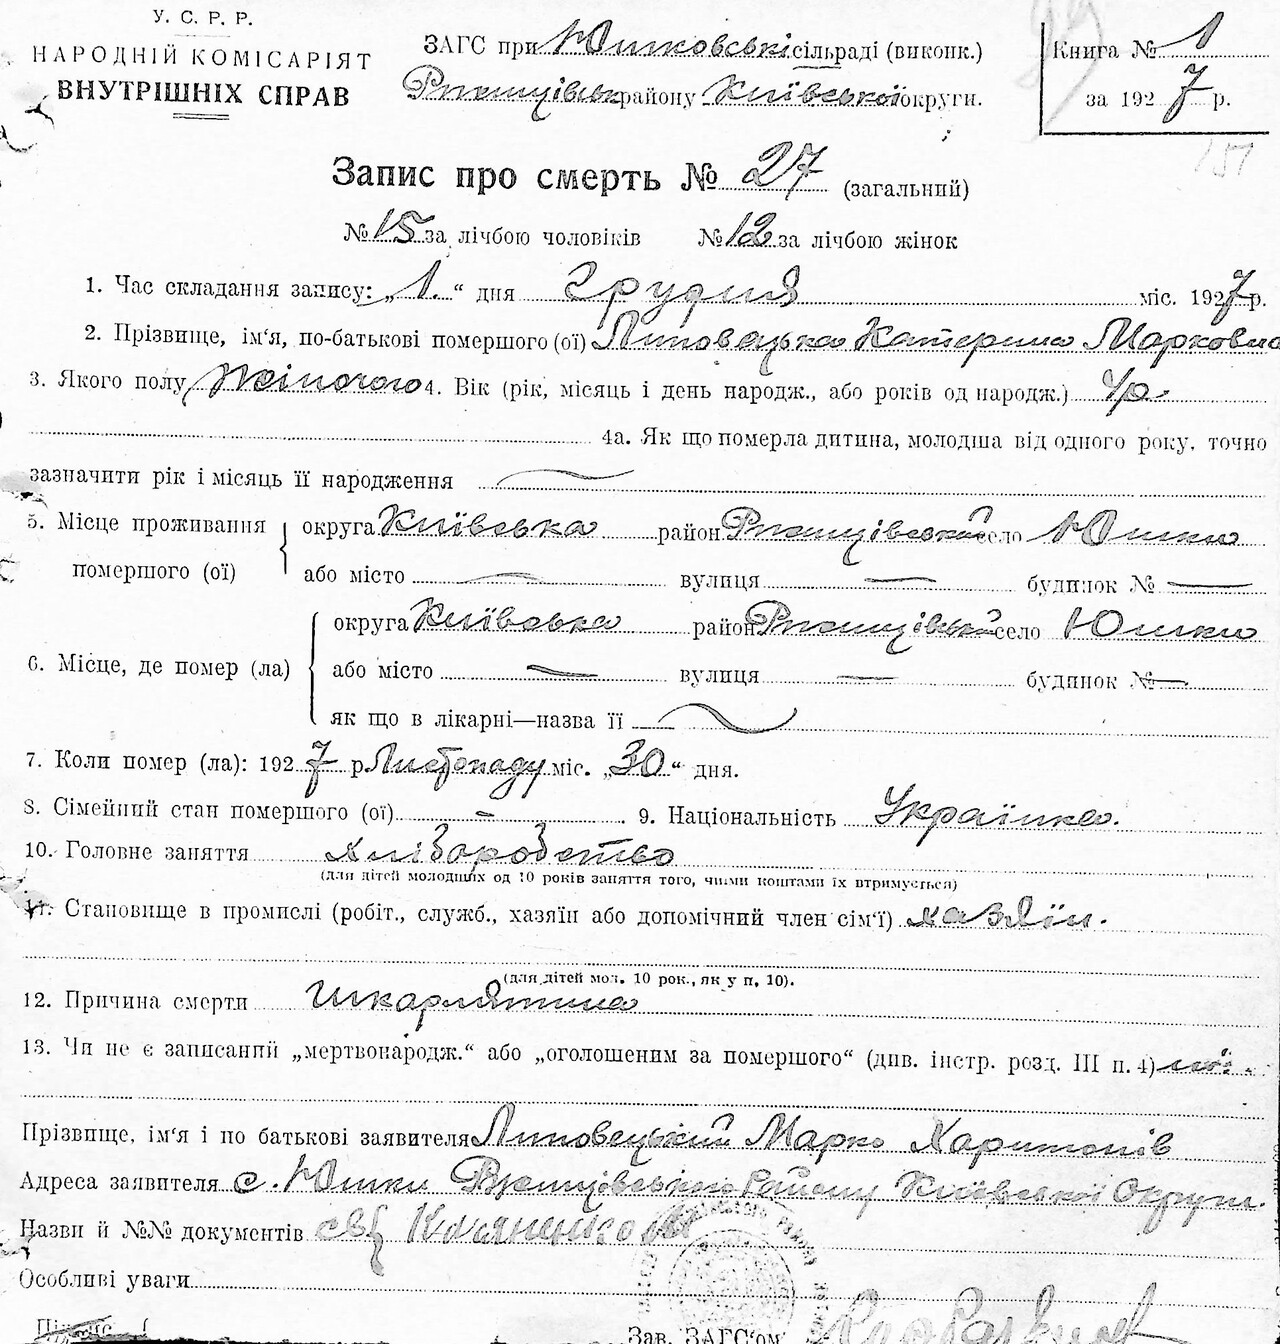 У. С. Р. Р.
НАРОДНІЙ КОМІСАРІЯТ
ВНУТРІШНІХ СПРАВ
ЗАГС при Юшковській сільраді (виконк.)
Ржищівськ району Київської округи.
Книга № 1
за 1927 р.
Запис про смерть № 27 (загальний)
№ 15 за лічбою чоловіків № 12 за лічбою жінок
1. Час складання запису: „1.“ дня Грудня міс. 1927 р.
2. Прізвище, ім'я, по-батькові помершого (ої) Липовецька Катерина Марковна
3. Якого полу жіночого 4. Вік (рік, місяць і день народж., або років од народж.) 4р.
4а. Як що померла дитина, молодша від одного року, точно
зазначити рік і місяць її народження
5. Місце проживання помершого (ої) округа Київська район Ржищівський село Юшки
або місто — вулиця — будинок № —
6. Місце, де помер (ла) округа Київська район Ржищівський село Юшки
або місто — вулиця — будинок № —
як що в лікарні—назва її
7. Коли помер (ла): 1927 р Листопаду міс. „30“ дня.
8. Сімейний стан помершого (ої) - 9. Національність Українка.
10. Головне заняття хліборобство
(для дітей молодших од 10 років заняття того, чиїми коштами їх втримується)
11. Становище в промислі (робіт., служб., хазяїн або допомічний член сім'ї) хазяїн.
(для дітей мол. 10 рок., як у п. 10).
12. Причина смерти Шкарлятина
13. Чи не є записаний „мертвонародж.“ або „оголошеним за помершого“ (див. інстр. розд. III п. 4)
Прізвище, ім'я і по батькові заявителя Липовецький Марко Харитонів
Адреса заявителя с. Юшки Ржищівського Району Київської Округи.
Назви й №№ документів
Особливі уваги
Зав. ЗАГС'ом